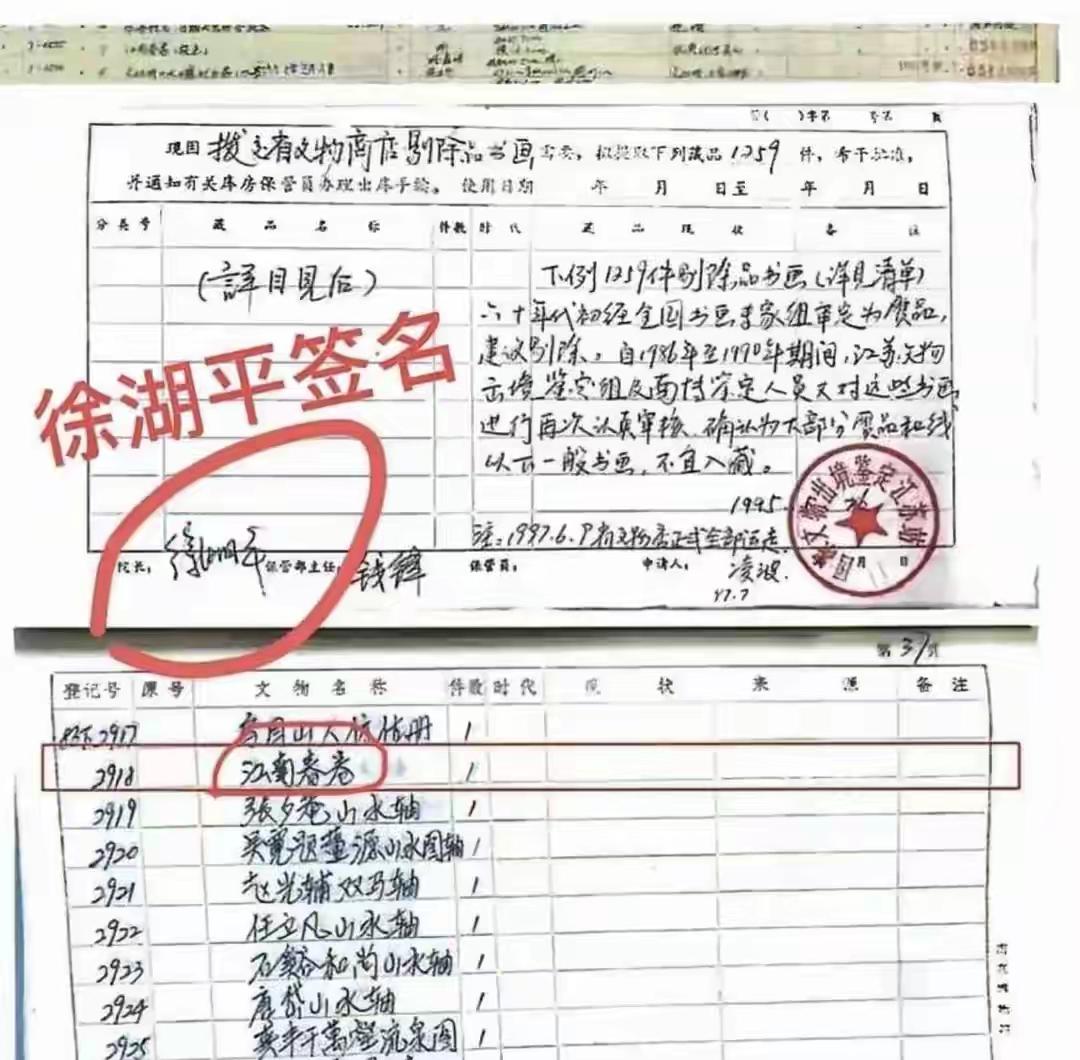 现因 拨交省文物商店剔除品书画 需要,拟提取下列藏品 1259 件,希予批准,
并通知有关库房保管员办理出库手续。 使用日期 年 月 日至 年 月 日
分类号 藏品名称 件数 时代 藏品现状 备注
(詳目見后)
下例1259件剔除品书画(详見清单)
六十年代初经全国书画专家组审定为贋品,
建议剔除。自1986年至1990年期间,江苏文物
出境鉴定组及南博鉴定人员又对这些书画
进行再次认真审核、确认为大部分贋品和线
以下一般书画,不宜入藏。
1995.
注:1997.6.9省文物店正式全部运走
徐湖平签名
院长: 徐湖平 保管部主任: 钱锋 保管员: 申请人: 凌波.
97.7
月 日
第37页
登记号 原号 文物名称 件数 时代 现状 来源 备注
2917 1
2918 江南春卷 1
2919 張夕菴山水轴 1
2920 吴寛题董源山水图轴 1
2921 赵光辅双马轴 1
2922 任立凡山水轴 1
2923 石谿和尚山水轴 1
2924 唐岱山水轴 1
2925